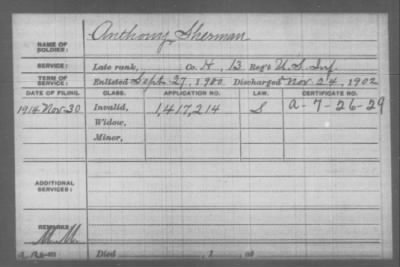 Anthony, Sherman
NAME OF SOLDIER:
SERVICE: Late rank, Co. H, 13 Reg't U.S. Inf
TERM OF SERVICE: Enlisted Sept. 27, 1900 Discharged Nov. 24, 1902
DATE OF FILING. CLASS. APPLICATION NO. LAW. CERTIFICATE NO.
1914 Nov. 30 Invalid, 1,417,214 S A-7-26-29
Widow,
Minor,
ADDITIONAL SERVICES:
REMARKS:
Died , 1 , at